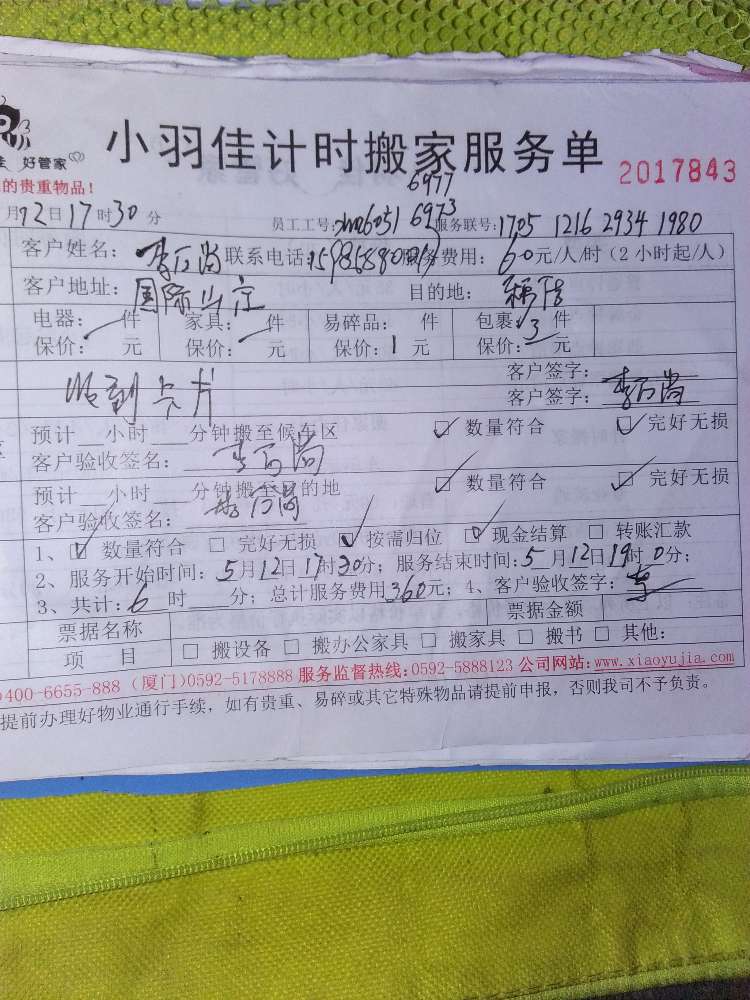 好管家
小羽佳计时搬家服务单
2017843
的贵重物品!
月12日17时30分
6977
员工工号: 6051 6973 服务联号:1705 1216 2934 1980
客户姓名: 联系电话: 服务费用: 60元/人/时(2小时起/人)
客户地址: 国际山庄 目的地:
电器: 件 家具: 件 易碎品: 件 包裹: 3 件
保价: 元 保价: 元 保价: 元 保价: 元
客户签字:
客户签字:
收到卡片
预计 小时 分钟搬至候车区 ☑ 数量符合 ☑ 完好无损
客户验收签名:
预计 小时 分钟搬至目的地 ☑ 数量符合 ☑ 完好无损
客户验收签名:
1、☑ 数量符合 □ 完好无损 ☑ 按需归位 ☑ 现金结算 □ 转账汇款
2、服务开始时间: 5月12日17时30分; 服务结束时间: 5月12日19时0分;
3、共计: 6时 分; 总计服务费用360元; 4、客户验收签字: 李
票据名称 票据金额
项 目 □ 搬设备 □ 搬办公家具 □ 搬家具 □ 搬书 □ 其他:
400-6655-888 (厦门)0592-5178888 服务监督热线:0592-5888123 公司网站:www.xiaoyujia.com
提前办理好物业通行手续, 如有贵重、易碎或其它特殊物品请提前申报, 否则我司不予负责。